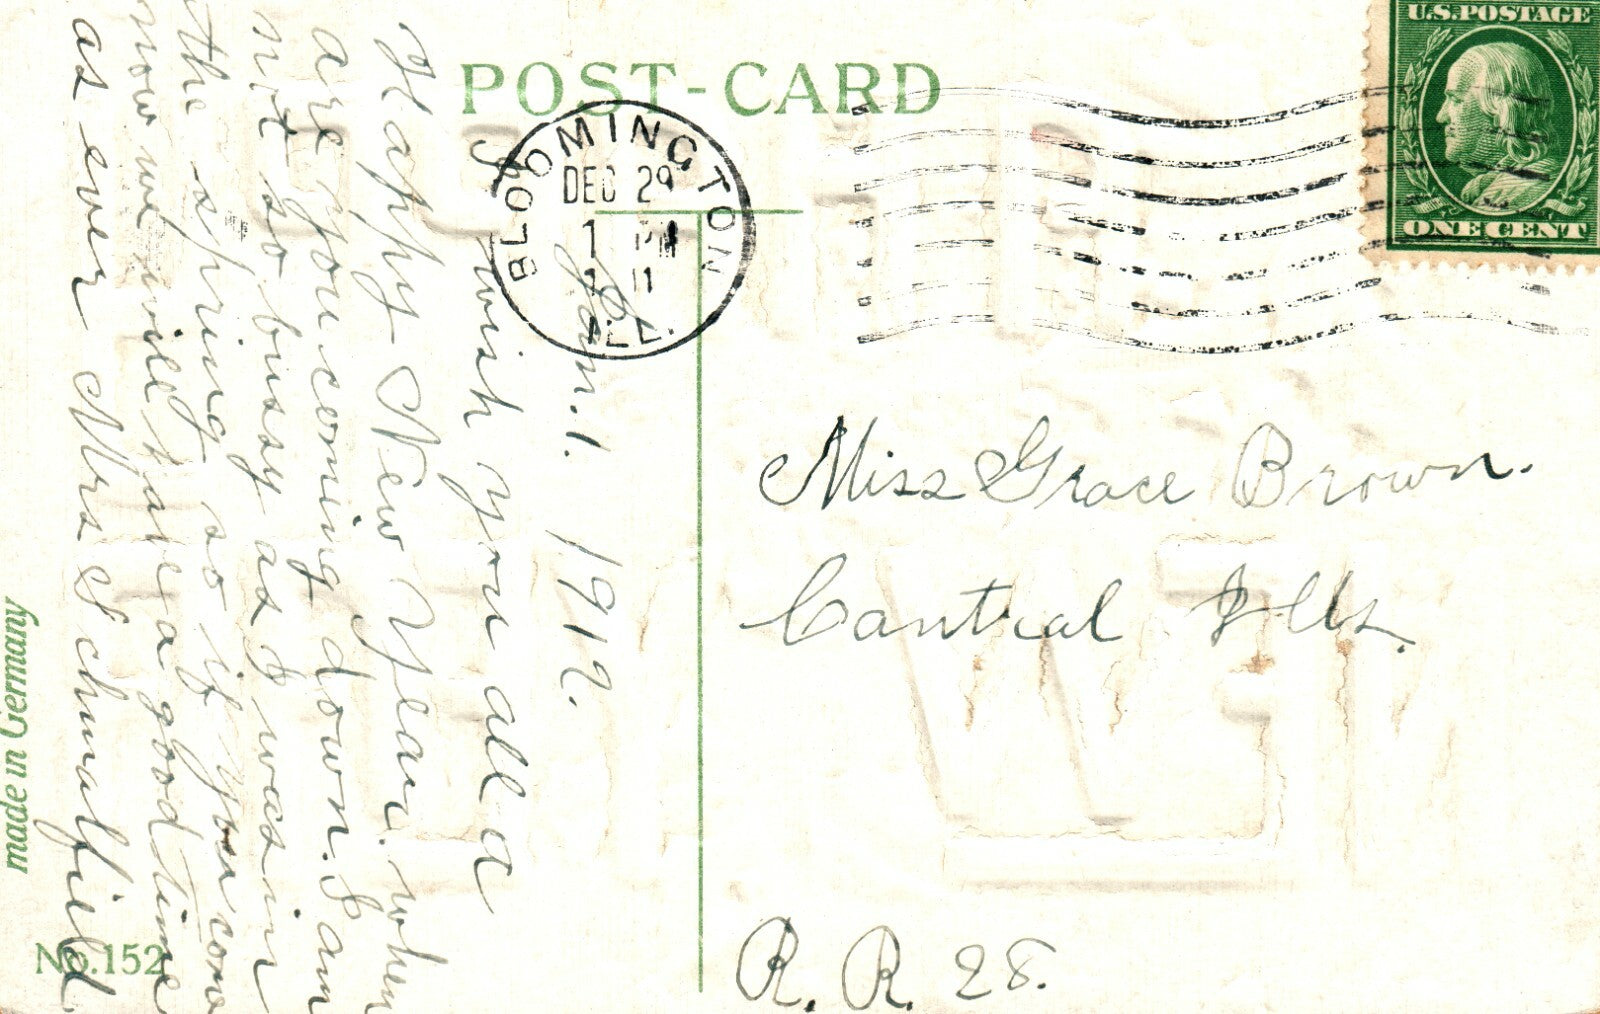 POST-CARD
U.S.POSTAGE
ONE CENT
BLOOMINGTON
DEC 29
1 PM
1911
ILL.
Jan. 1. 1912.
I wish you all a
Happy New Year. when
are you coming down. I am
not so bussy as I was in
the spring so if you come
now we will have a good time
as ever Mrs S Schmalfield
Miss Grace Brown.
Cantral Ills.
R. R. 28.
made in Germany
No.152